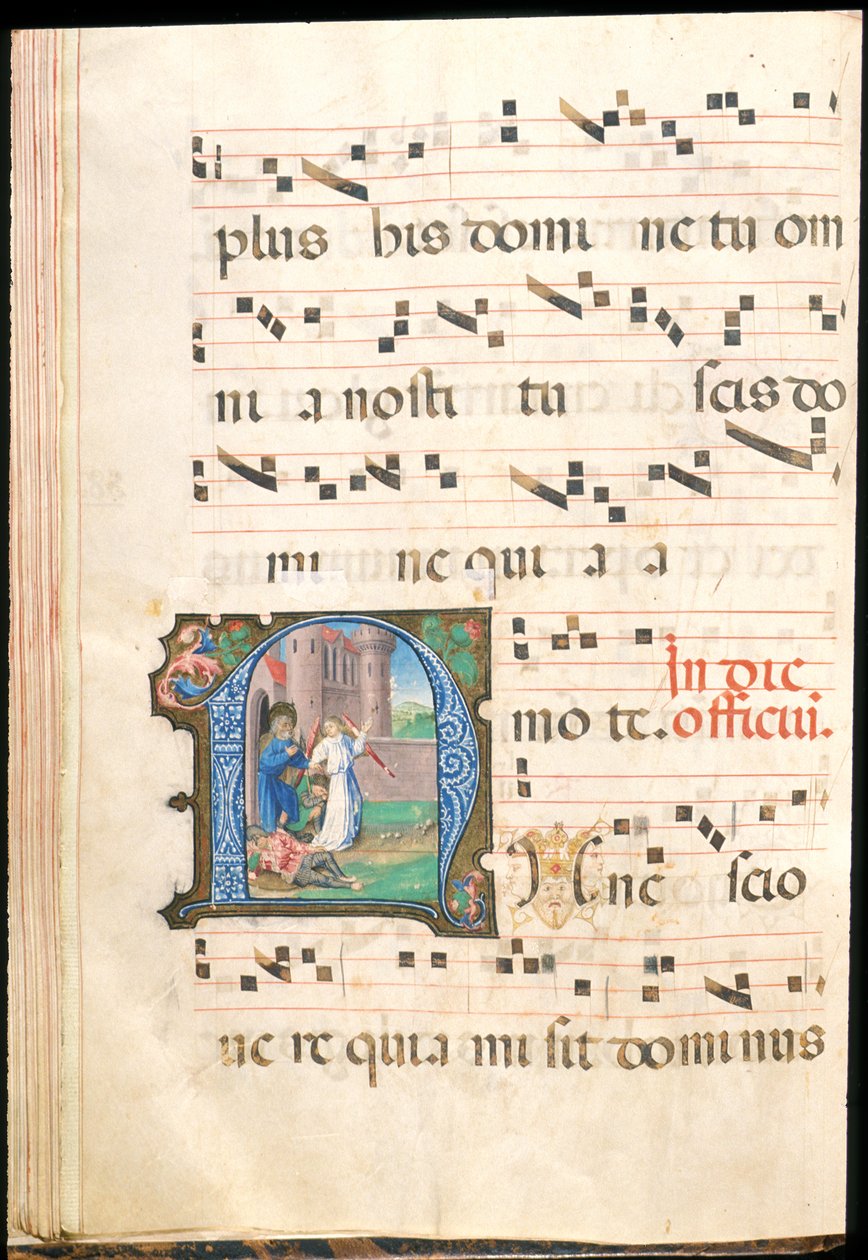 plus his domi ne tu om
ni a nosti tu scis do
mi ne qui a a
mo te. In die
officii.
Nunc scio
ue re quia mi sit dominus